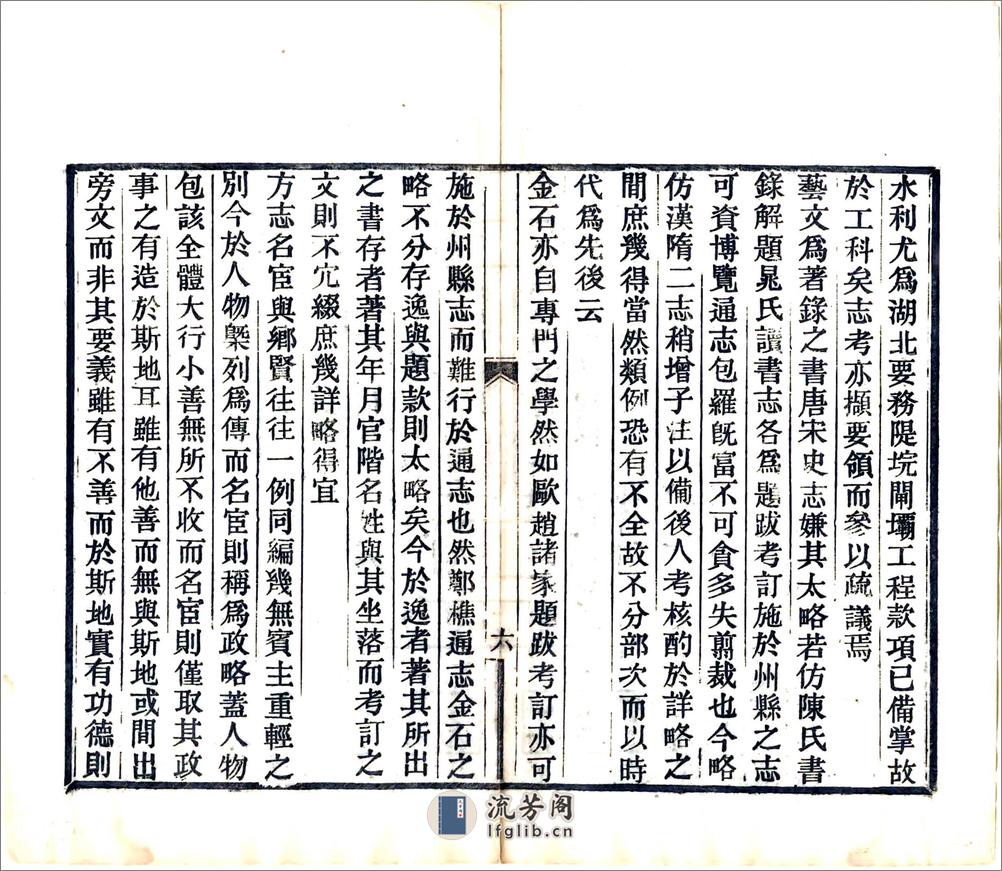 水利尤爲湖北要務隄垸閘壩工程款項已備掌故
於工科矣志考亦擷要領而參以疏議焉
藝文爲著錄之書唐宋史志嫌其太略若仿陳氏書
錄解題晁氏讀書志各爲題跋考訂施於州縣之志
可資博覽通志包羅旣富不可貪多失翦裁也今略
仿漢隋二志稍增子注以備後人考核酌於詳略之
間庶幾得當然類例恐有不全故不分部次而以時
代爲先後云
金石亦自專門之學然如歐趙諸家題跋考訂亦可
六
施於州縣志而難行於通志也然鄭樵通志金石之
略不分存逸與題款則太略矣今於逸者著其所出
之書存者著其年月官階名姓與其坐落而考訂之
文則不宂綴庶幾詳略得宜
方志名宦與鄉賢往往一例同編幾無賓主重輕之
別今於人物槩列爲傳而名宦則稱爲政略蓋人物
包該全體大行小善無所不收而名宦則僅取其政
事之有造於斯地耳雖有他善而無與斯地或間出
旁文而非其要義雖有不善而於斯地實有功德則
流芳阁
lfglib.cn